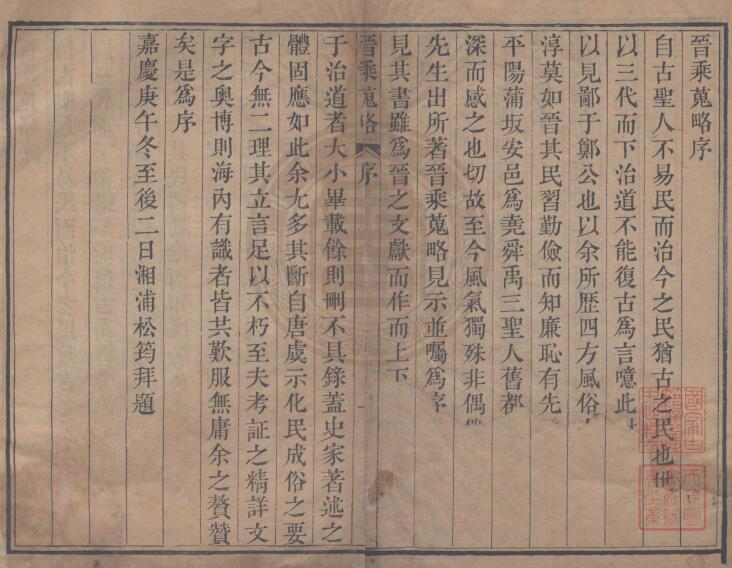 晉乘蒐略序
自古聖人不易民而治今之民猶古之民也世
以三代而下治道不能復古為言噫此
以見鄙于鄭公也以余所歴四方風俗
淳莫如晉其民習勤儉而知廉恥有先
平陽蒲坂安邑為堯舜禹三聖人舊都
深而感之也切故至今風氣獨殊非偶
先生出所著晉乘蒐略見示並囑為序
見其書雖為晉之文獻而作而上下
晉乘蒐略 序
于治道者大小畢載餘則刪不具錄蓋史家著述之
體固應如此余尤多其斷自唐虞示化民成俗之要
古今無二理其立言足以不朽至夫考証之精詳文
字之奧博則海內有識者皆共歎服無庸余之贅贊
矣是為序
嘉慶庚午冬至後二日湘浦松筠拜題